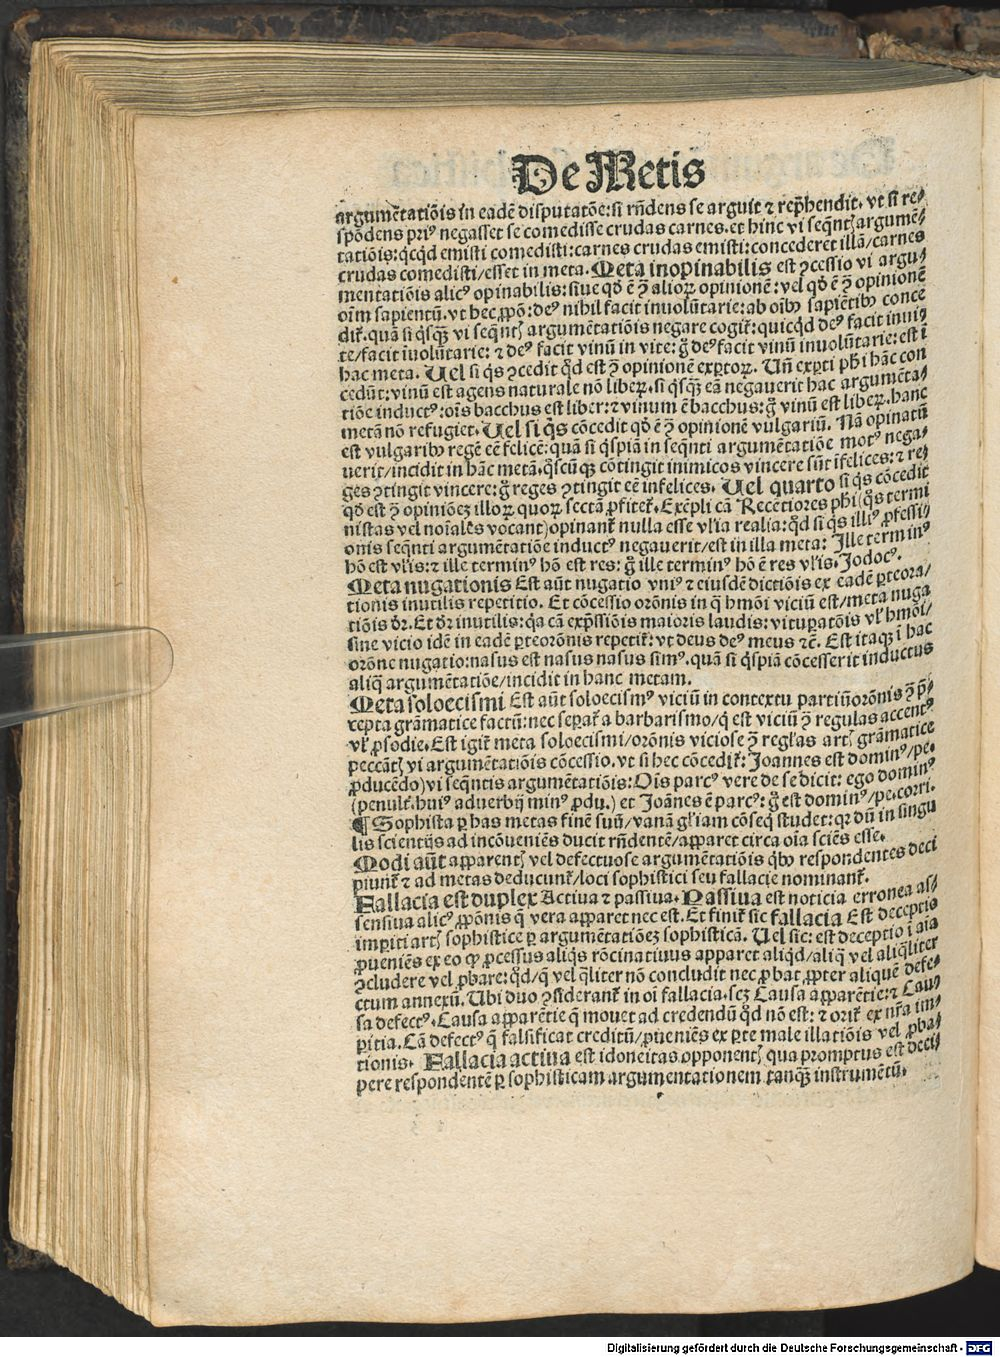 De Metis
argumẽtatiõis in eadẽ disputatõe: si rñdens se arguit ⁊ rep̃hendit. vt si re⸗
spõdens pri⁹ negasset se comedisse crudas carnes. et hinc vi seq̃ntꝭ argumẽ⸗
tatiõis: qcqd emisti comedisti: carnes crudas emisti: concederet illã/carnes
crudas comedisti/esset in meta. Meta inopinabilis est ↄcessio vi argu⸗
mentatiõis alic⁹ opinabilis: siue qd̛ ẽ ↄ̃ alioꝝ opinionẽ: vel qd̛ ẽ ↄ̃ opinionẽ
oĩm sapientũ. vt hec ꝓpõ: de⁹ nihil facit inuolũtarie: ab oĩbꝰ sapiẽtibꝰ conce
dit̃. quã si q̃sqꝫ vi seq̃ntꝭ argumẽtatiõis negare cogit̃: quicqd de⁹ facit inui⸗
te/facit ĩuolũtarie: ⁊ de⁹ facit vinũ in vite: g̊ de⁹ facit vinũ inuolũtarie: est ĩ
hac meta. Uel si q̃s ↄcedit qd̛ est ↄ̃ opinionẽ exꝑtoꝝ. Uñ exꝑti ph̃i hãc con
cedũt: vinũ est agens naturale nõ libeꝝ. si q̃sqꝫ eã negauerit hac argumẽta⸗
tiõe induct⁹: oĩs bacchus est liber: ⁊ vinum ẽ bacchus: g̊ vinũ est libeꝝ. hanc
metã nõ refugiet. Uel si q̃s cõcedit qd̛ ẽ ↄ̃ opinionẽ vulgariũ. Nã opinatũ
est vulgaribꝰ regẽ eẽ felicẽ: quã si q̃spiã in seq̃nti argumẽtatiõe mot⁹ nega⸗
uerit/incidit in hãc metã. q̃scũqꝫ cõtingit inimicos vincere sũt ĩfelices: ⁊ re⸗
ges ↄtingit vincere: g̊ reges ↄtingit eẽ infelices. Uel quarto si q̃s cõcedit
qd̛ est ↄ̃ opiniõeꝫ illoꝝ quoꝝ sectã ꝓfitet̃. Exẽpli cã Recẽtiores ph̃i (q̃s termi
nistas vel noĩales vocant) opinant̃ nulla esse vl̃ia realia: qd̛ si q̃s illi⁹ ꝓfessi⸗
onis seq̃nti argumẽtatiõe induct⁹ negauerit/est in illa meta: Ille termin⁹
hõ est vl̃is: ⁊ ille termin⁹ hõ est res: g̊ ille termin⁹ hõ ẽ res vl̃is. Jodoc⁹.
Meta nugationis Est aũt nugatio vni⁹ ⁊ eiusdẽ dictiõis ex eadẽ ꝑte ora⸗
tionis inutilis repetitio. Et cõcessio orõnis in q̃ hmõi viciũ est/meta nuga
tiõis dr̃. Et dr̃ inutilis: qa cã exp̃ssiõis maioris laudis: vituꝑatõis vl̃ hmõi/
sine vicio idẽ in eadẽ ꝑte orõnis repetit̃: vt deus de⁹ meus ⁊c̃. Est itaqꝫ ĩ hac
orõne nugatio: nasus est nasus nasus sim⁹. quã si q̃spiã cõcesserit inductus
aliq̃ argumẽtatiõe/incidit in hanc metam.
Meta soloecismi Est aũt soloecism⁹ viciũ in contextu partiũ orõnis ↄ̃ p̃⸗
cepta grãmatice factũ: nec seꝑat̃ a barbarismo/q̃ est viciũ ↄ̃ regulas accent⁹
vl̃ ꝓsodie. Est igit̃ meta soloecismi/orõnis viciose ↄ̃ reglas artꝭ grãmatice
peccãtꝭ vi argumẽtatiõis cõcessio. vt si hec cõcedit̃: Joannes est domin⁹/pe.
ꝓducẽdo) vi seq̃ntis argumẽtatiõis: Oĩs parc⁹ vere de se dicit: ego domin⁹
(penult̃. hui⁹ aduerbij min⁹ ꝓdu.) et Joãnes ẽ parc⁹: g̊ est domin⁹/pe. corri.
¶ Sophista ꝑ has metas finẽ suũ/vanã gl̃iam cõseq̃ studet: qꝛ dũ in singu
lis scientijs ad incõueniẽs ducit rñdentẽ/apparet circa oĩa sciẽs esse.
Modi aũt apparentꝭ vel defectuose argumẽtatiõis q̃bꝰ respondentes deci
piunt̃ ⁊ ad metas deducunt̃/loci sophistici seu fallacie nominant̃.
Fallacia est duplex Actiua ⁊ passiua. Passiua est noticia erronea as⸗
sensiua alic⁹ ꝓpõnis q̃ vera apparet nec est. Et finit̃ sic fallacia Est deceptio
imꝑiti artꝭ sophistice ꝑ argumẽtatiõeꝫ sophisticã. Uel sic: est deceptio ĩ aĩa
ꝓueniẽs ex eo qꝙ ꝓcessus aliq̃s rõcinatiuus apparet aliqd/aliq̃ vel aliq̃liter
ↄcludere vel ꝓbare: qd̛/q̃ vel q̃liter nõ concludit nec ꝓbat ꝓpter aliquẽ defe⸗
ctum annexũ. Ubi duo ↄsiderant̃ in oĩ fallacia. scꝫ Causa apparẽtie: ⁊ Cau⸗
sa defect⁹. Causa apparẽtie q̃ mouet ad credendũ qd̛ nõ est: ⁊ orit̃ ex nr̃a im⸗
ꝑitia. Cã defect⁹ q̃ falsificat creditũ/ꝓueniẽs ex ꝑte male illatiõis vel ꝓba⸗
tionis. Fallacia actiua est idoneitas opponentꝭ qua promptus est deci⸗
pere respondentẽ ꝑ sophisticam argumentationem tanqꝫ instrumẽtũ.
Digitalisierung gefördert durch die Deutsche Forschungsgemeinschaft - DFG